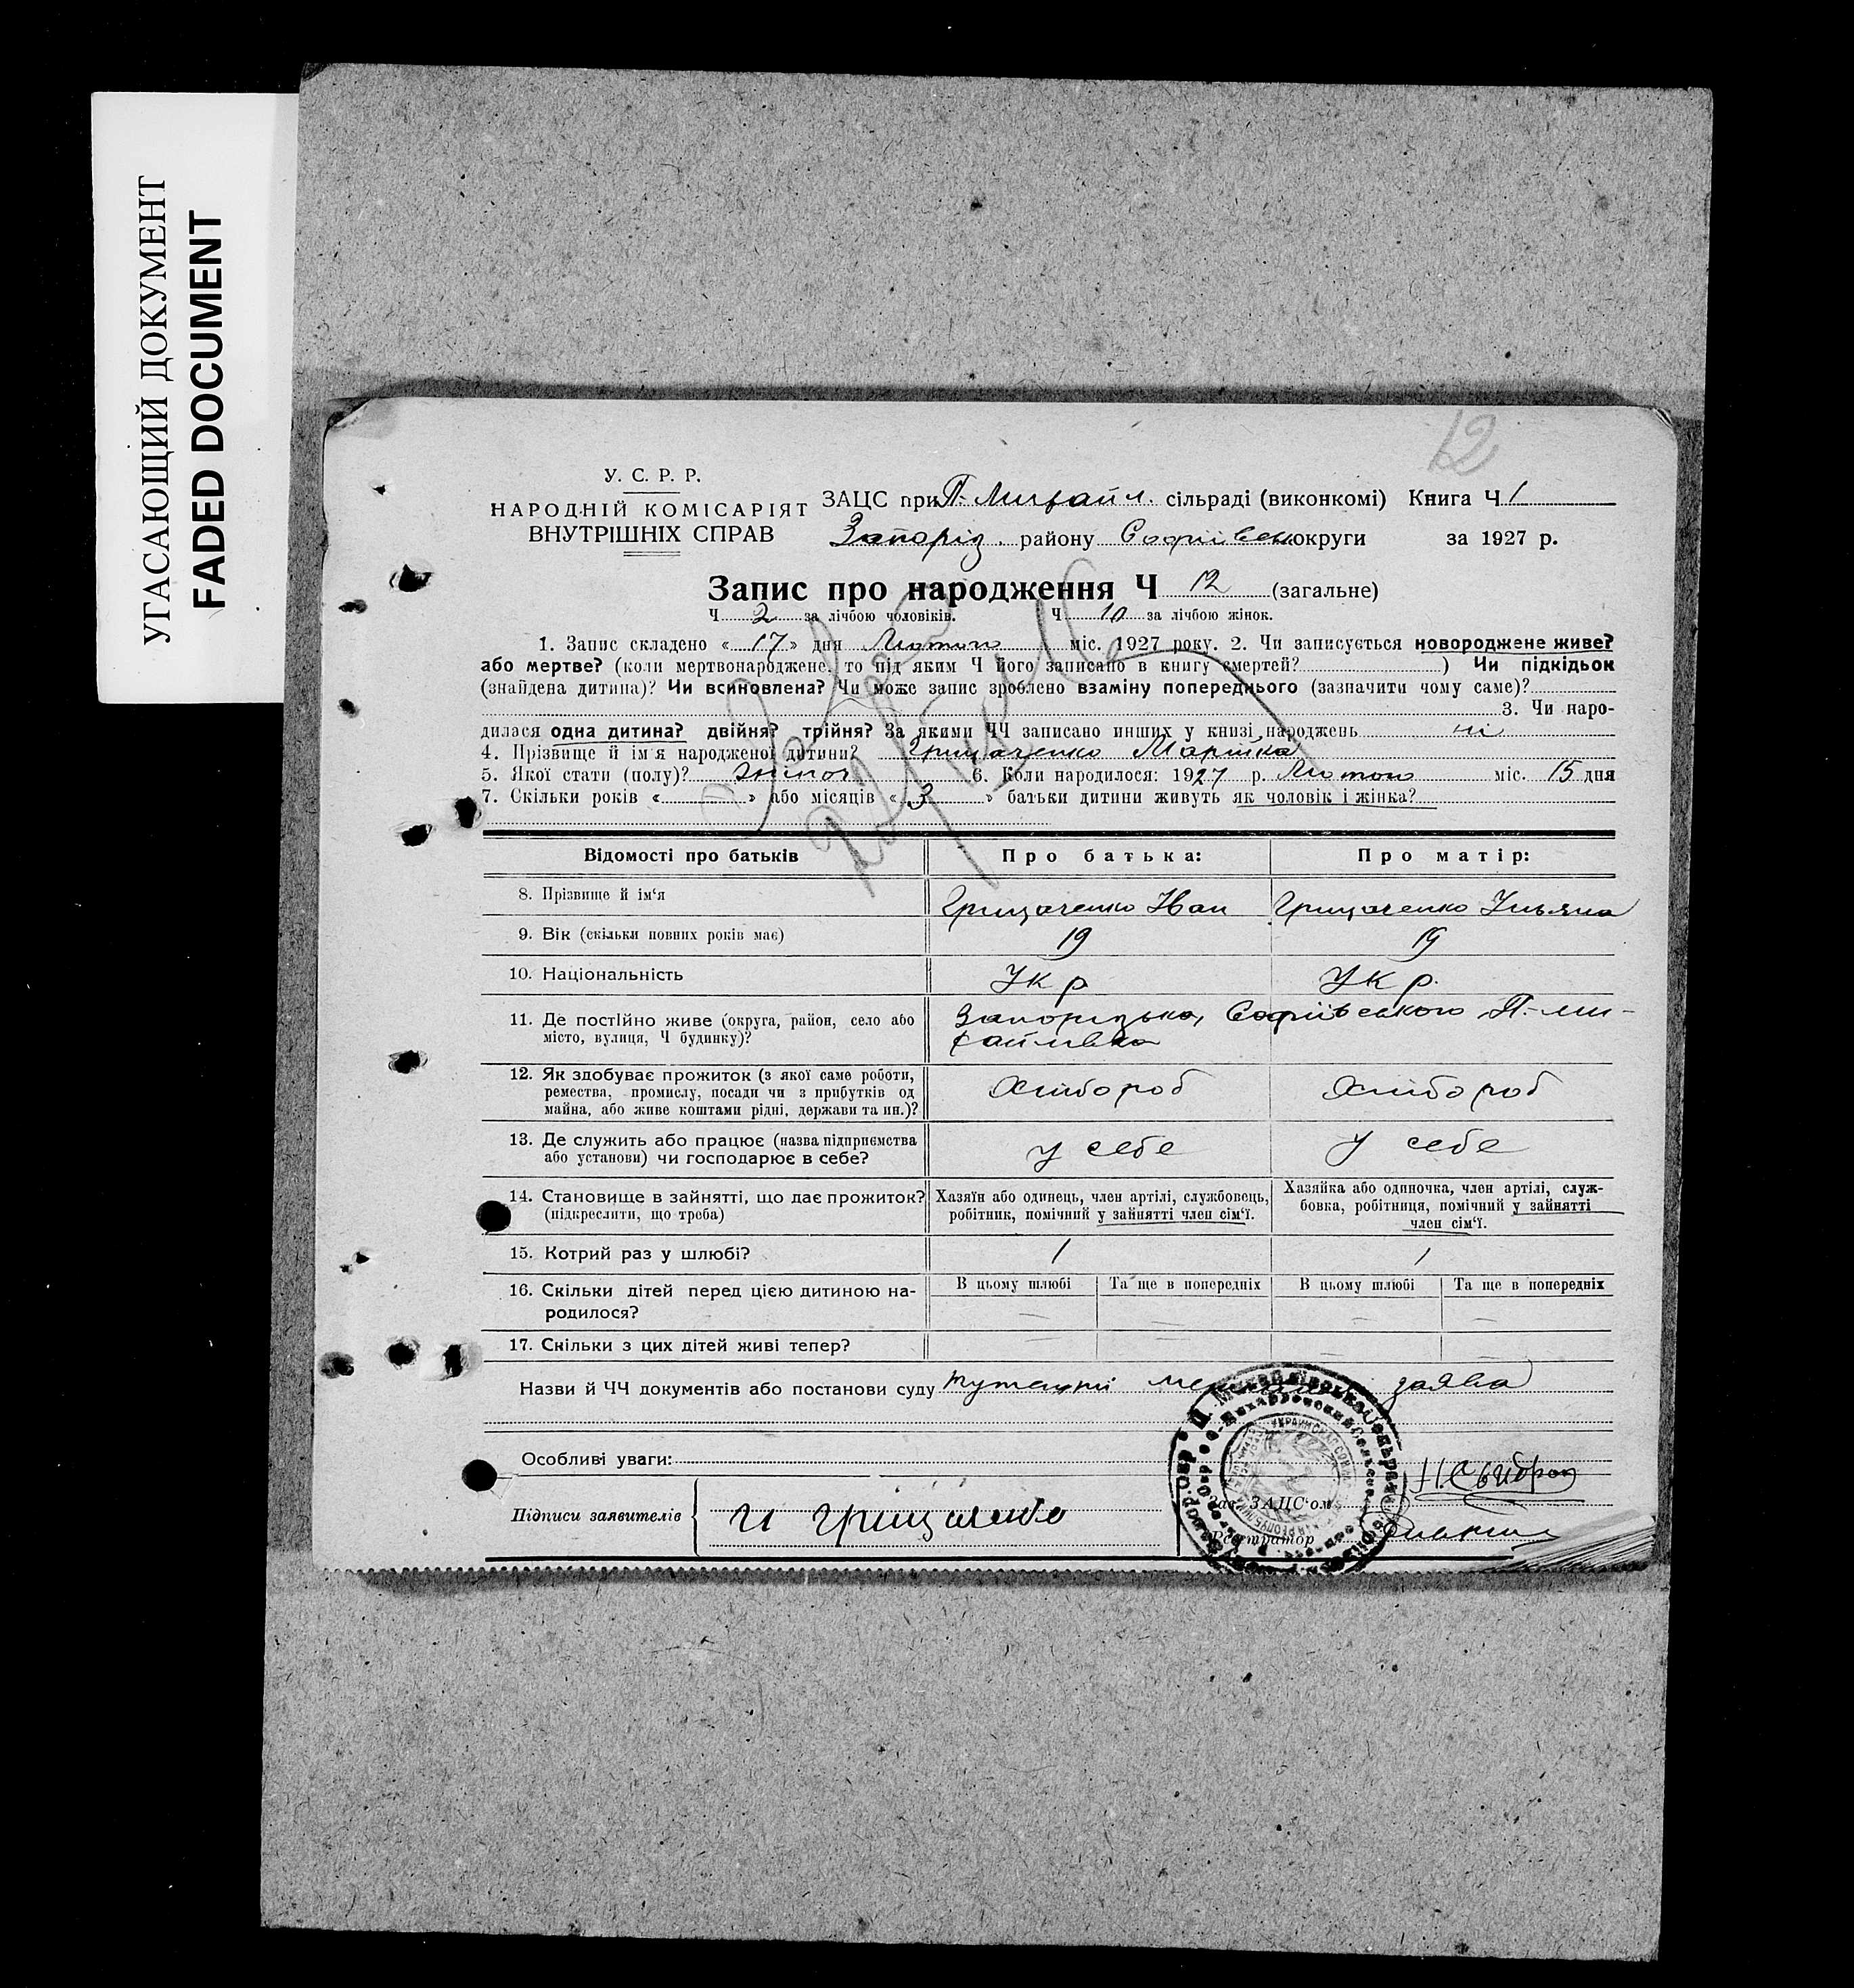 УГАСАЮЩИЙ ДОКУМЕНТ
FADED DOCUMENT
12
У. С. Р. Р.
НАРОДНІЙ КОМІСАРІЯТ
ВНУТРІШНІХ СПРАВ
ЗАЦС при П-Михайл. сільраді (виконкомі) Книга Ч 1
Запоріз. району Софіївськ округи за 1927 р.
Запис про народження Ч 12 (загальне)
Ч 2 за лічбою чоловіків. Ч 10 за лічбою жінок.
1. Запис складено « 17 » дня Лютого міс. 1927 року. 2. Чи записується новороджене живе?
або мертве? (коли мертвонароджене, то під яким Ч його записано в книгу смертей? ) Чи підкідьок
(знайдена дитина)? Чи всиновлена? Чи може запис зроблено взаміну попереднього (зазначити чому саме)?
3. Чи наро-
дилася одна дитина? двійня? трійня? За якими ЧЧ записано инших у книзі народжень ні
4. Прізвище й ім'я народженої дитини? Грищаченко Марійка
5. Якої стати (полу)? Жіноч 6. Коли народилося: 1927 р. Лютого міс. 15 дня
7. Скільки років « » або місяців « 3 » батьки дитини живуть як чоловік і жінка?
Відомості про батьків Про батька: Про матір:
8. Прізвище й ім'я Грищаченко Иван Грищаченко Ульяна
9. Вік (скільки повних років має) 19 19
10. Національність Укр Укр.
11. Де постійно живе (округа, район, село або
місто, вулиця, Ч будинку)?
Запорізька, Софіївського П-Ми-
хайлівка
12. Як здобуває прожиток (з якої саме роботи,
ремества, промислу, посади чи з прибутків од
майна, або живе коштами рідні, держави та ин.)?
Хлібороб Хлібороб
13. Де служить або працює (назва підприємства
або установи) чи господарює в себе?
у себе у себе
14. Становище в зайнятті, що дає прожиток?
(підкреслити, що треба)
Хазяїн або одинець, член артілі, службовець,
робітник, помічний у зайнятті член сім'ї.
Хазяйка або одиночка, член артілі, служ-
бовка, робітниця, помічний у зайнятті
член сім'ї.
15. Котрий раз у шлюбі? 1 1
16. Скільки дітей перед цією дитиною на-
родилося?
В цьому шлюбі Та ще в попередніх В цьому шлюбі Та ще в попередніх
— — — —
17. Скільки з цих дітей живі тепер? — — — —
Назви й ЧЧ документів або постанови суду заява
Особливі уваги:
Підписи заявителів И Грищаченко
Зав. ЗАЦС'ом
Реєстратор